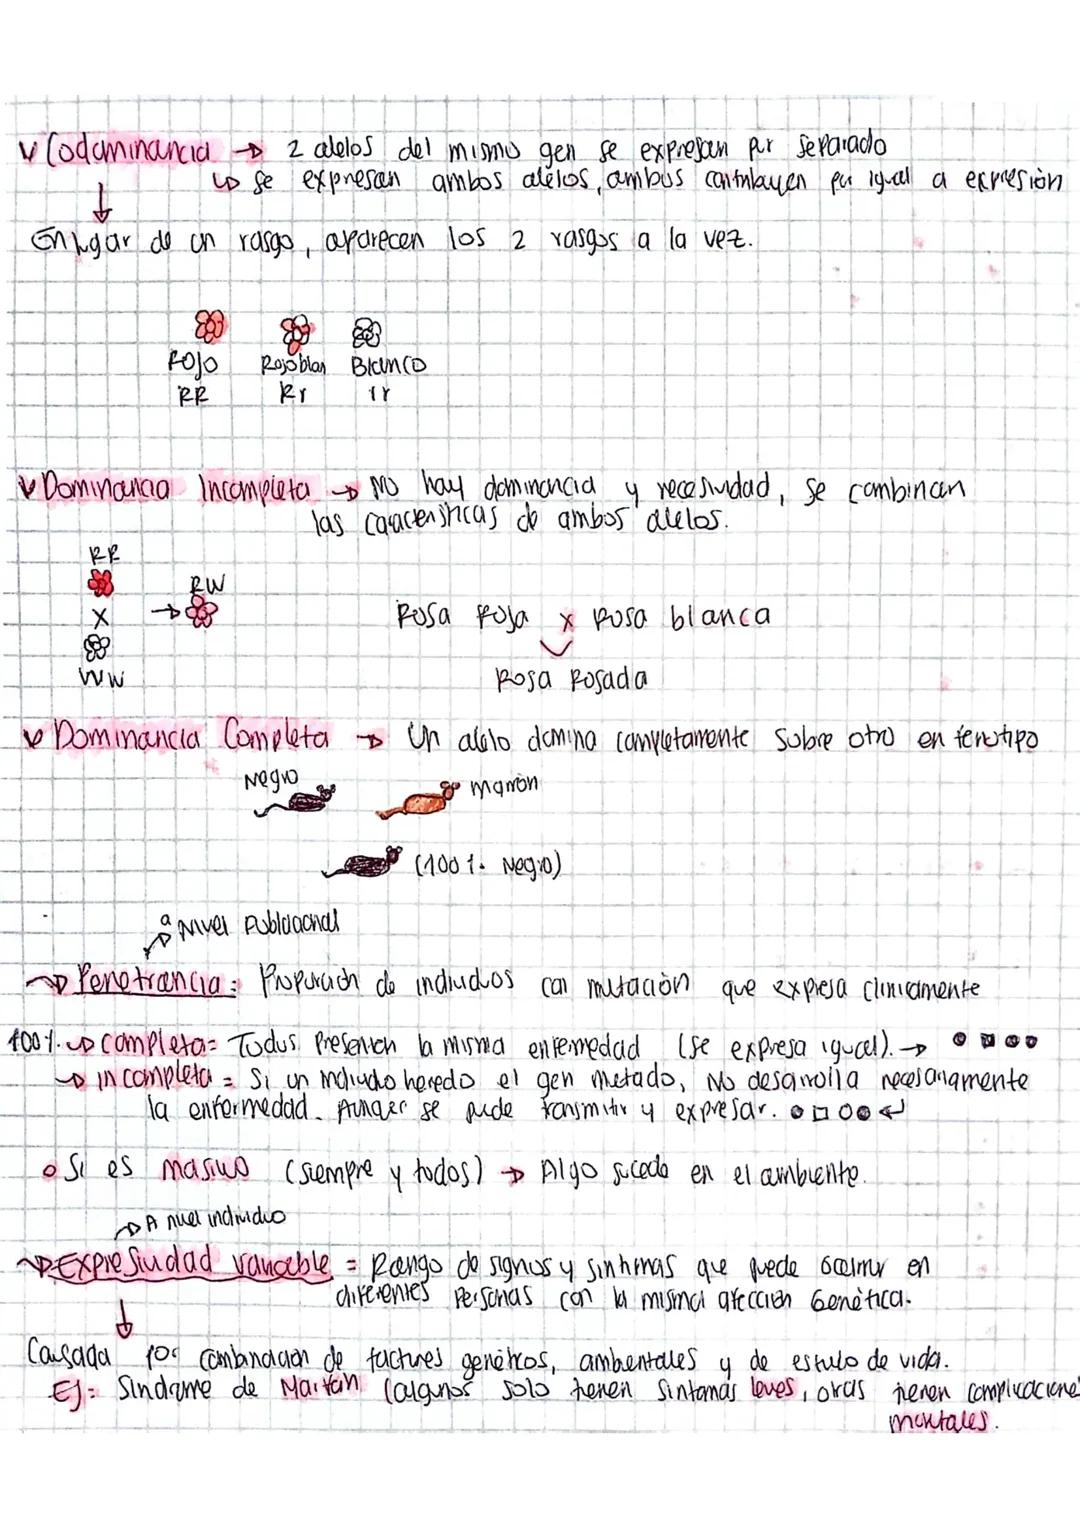 Codominancia → 2 alelos del mismo gen se expresan por separado
↳ se expresan ambos alelos, ambos contribuyen por igual a expresión
↓
En lugar de un rasgo, aparecen los 2 rasgos a la vez.
Rojo Rojoblan Blanco
RR Rr rr
Dominancia Incompleta → No hay dominancia y recesividad, se combinan
las características de ambos alelos.
RR
RW
X →
WW
Rosa Roja x Rosa blanca
Rosa Rosada
Dominancia Completa → Un alelo domina completamente sobre otro en fenotipo
Negro
marrón
(100% Negro)
a Nivel Poblacional
Penetrancia: Proporción de individuos con mutación que expresa clinicamente
100% ↳ completa = Todos presentan la misma enfermedad (se expresa igual). →
→ incompleta = Si un individuo heredo el gen mutado, No desarrolla necesariamente
la enfermedad. Aunque se puede transmitir y expresar.
Si es masivo (siempre y todos) → Algo sucede en el ambiente.
→ A nivel individuo
Expresividad variable = Rango de signos y sintomas que puede ocurrir en
diferentes Personas con la misma afección Genética.
↓
Causada por combinación de factores genéticos, ambientales y de estilo de vida.
Ej: Sindrome de Marfan (algunos solo tienen Sintomas leves, otras tienen complicaciones
mortales.